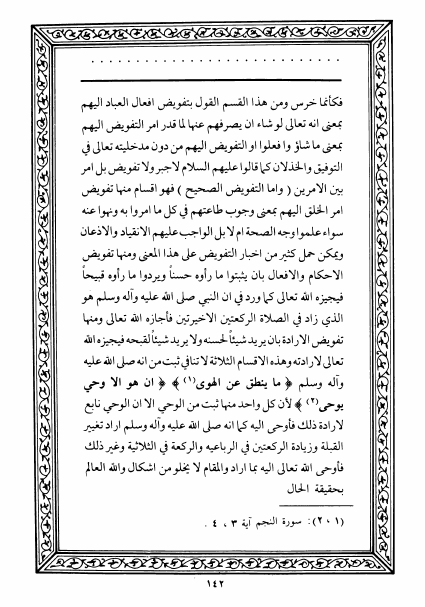 فكأنما خرس ومن هذا القسم القول بتفويض افعال العباد اليهم
بمعنى انه تعالى لو شاء ان يصرفهم عنها لما قدر امر التفويض اليهم
بمعنى ما شاؤ وا فعلوا او التفويض اليهم من دون مدخليته تعالى في
التوفيق والخذلان كما قالوا عليهم السلام لا جبر ولا تفويض بل امر
بين الامرين ( واما التفويض الصحيح ) فهو اقسام منها تفويض
امر الخلق اليهم بمعنى وجوب طاعتهم في كل ما امروا به ونهوا عنه
سواء علموا وجه الصحة ام لا بل الواجب عليهم الانقياد والاذعان
ويمكن حمل كثير من اخبار التفويض على هذا المعنى ومنها تفويض
الاحكام والافعال بان يثبتوا ما رأوه حسناً ويردوا ما رأوه قبيحاً
فيجيزه الله تعالى كما ورد في ان النبي صلى الله عليه وآله وسلم هو
الذي زاد في الصلاة الركعتين الاخيرتين فأجازه الله تعالى ومنها
تفويض الارادة بان يريد شيئاً لحسنه ولا يريد شيئاً لقبحه فيجيزه الله
تعالى لارادته وهذه الاقسام الثلاثة لا تنافي ثبت من انه صلى الله عليه
وآله وسلم ﴿ ما ينطق عن الهوى(١) ﴾ ﴿ ان هو الا وحي
يوحى(٢) ﴾ لأن كل واحد منها ثبت من الوحي الا ان الوحي تابع
لارادة ذلك فأوحى اليه كما انه صلى الله عليه وآله وسلم اراد تغيير
القبلة وزيادة الركعتين في الرباعيه والركعة في الثلاثية وغير ذلك
فأوحى الله تعالى اليه بما اراد والمقام لا يخلو من اشكال والله العالم
بحقيقة الحال
(١ ، ٢): سورة النجم آية ٣ ، ٤ .
١٤٢